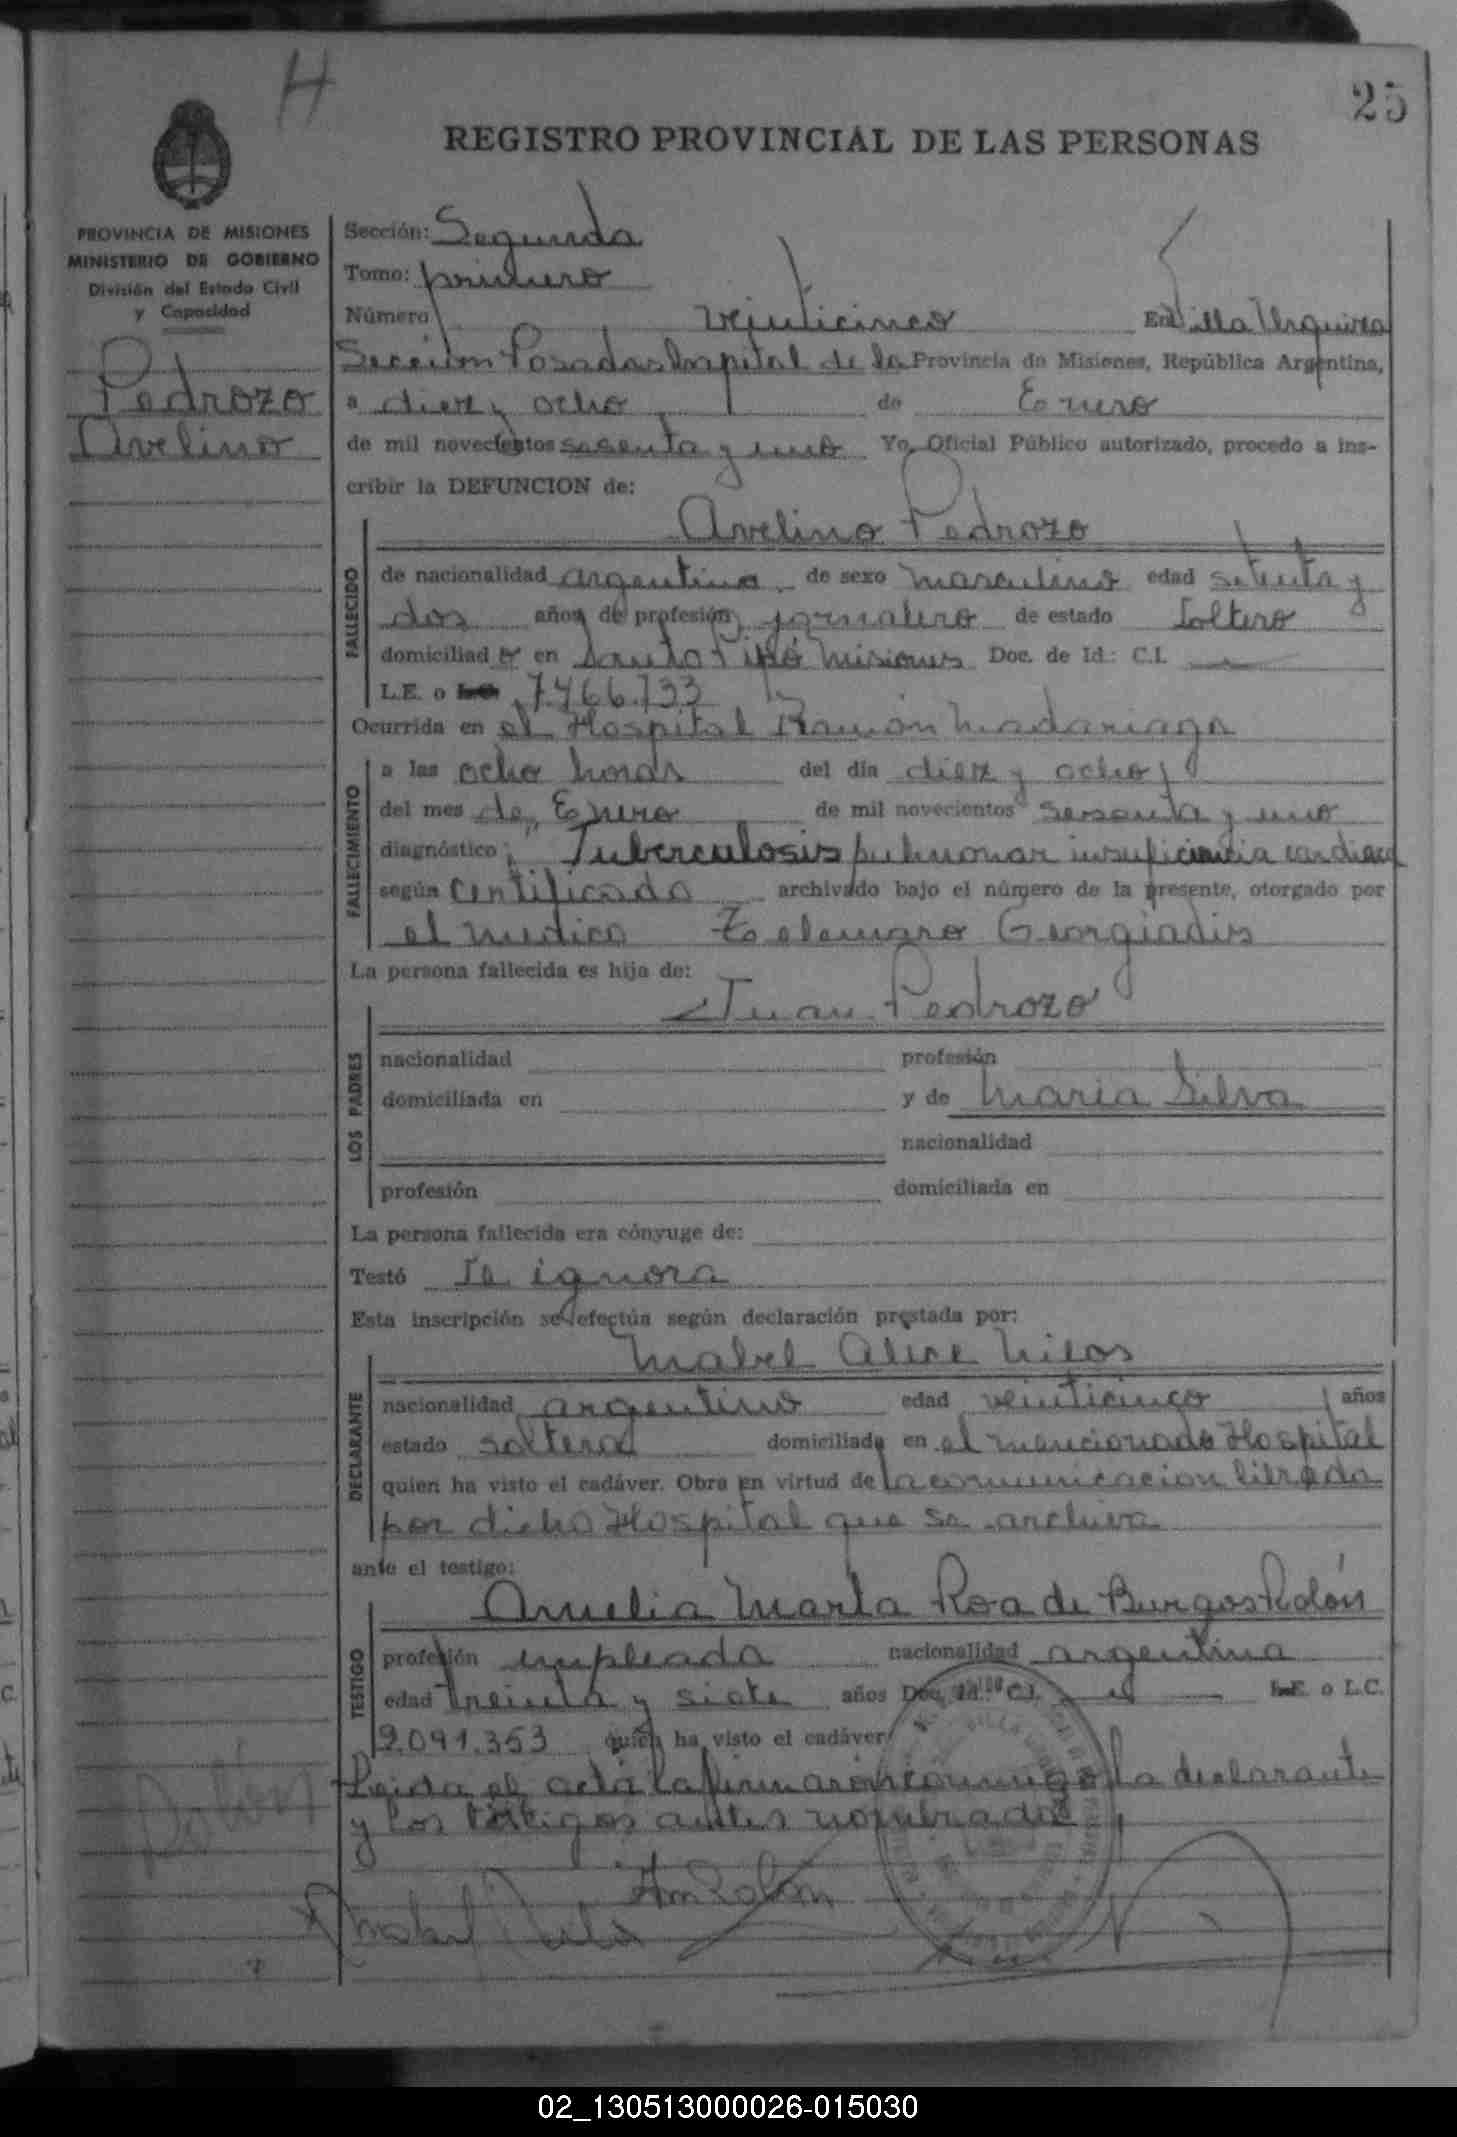 H
25
REGISTRO PROVINCIAL DE LAS PERSONAS
PROVINCIA DE MISIONES
MINISTERIO DE GOBIERNO
División del Estado Civil
y Capacidad
Pedrozo
Avelino
Sección: Segunda
Tomo: primero
Número veinticinco En Villa Urquiza
Sección Posadas hospital de la Provincia de Misiones, República Argentina,
a diez y ocho de Enero
de mil novecientos sesenta y uno Yo, Oficial Público autorizado, procedo a ins-
cribir la DEFUNCION de:
Avelino Pedrozo
FALLECIDO
de nacionalidad argentina de sexo masculino edad setenta y
dos años de profesión jornalero de estado Soltero
domiciliado en Santo Pipó Misiones Doc. de Id.: C.I.
L.E. o 7.466.733
Ocurrida en el Hospital Ramón Madariaga
FALLECIMIENTO
a las ocho horas del día diez y ocho
del mes de Enero de mil novecientos sesenta y uno
diagnóstico: Tuberculosis pulmonar insuficiencia cardiaca
según Certificado archivado bajo el número de la presente, otorgado por
el medico Georgiadis
La persona fallecida es hija de:
Juan Pedrozo
LOS PADRES
nacionalidad profesión
domiciliada en y de Maria Silva
nacionalidad
profesión domiciliada en
La persona fallecida era cónyuge de:
Testó Se ignora
Esta inscripción se efectúa según declaración prestada por:
Mabel Alice
DECLARANTE
nacionalidad argentino edad veinticinco años
estado soltera domiciliada en el mencionado Hospital
quien ha visto el cadáver. Obra en virtud de la comunicacion librada
por dicho Hospital que se archiva
ante el testigo:
Amelia Marta Roa de Burgos Rolón
TESTIGO
profesión empleada nacionalidad argentina
edad treinta y siete años Doc. Id.: C.I. L.E. o L.C.
2.091.353 quien ha visto el cadáver
Leida el acta la firmaron conmigo la declarante
y los testigos antes nombrados
Rolón
02_130513000026-015030